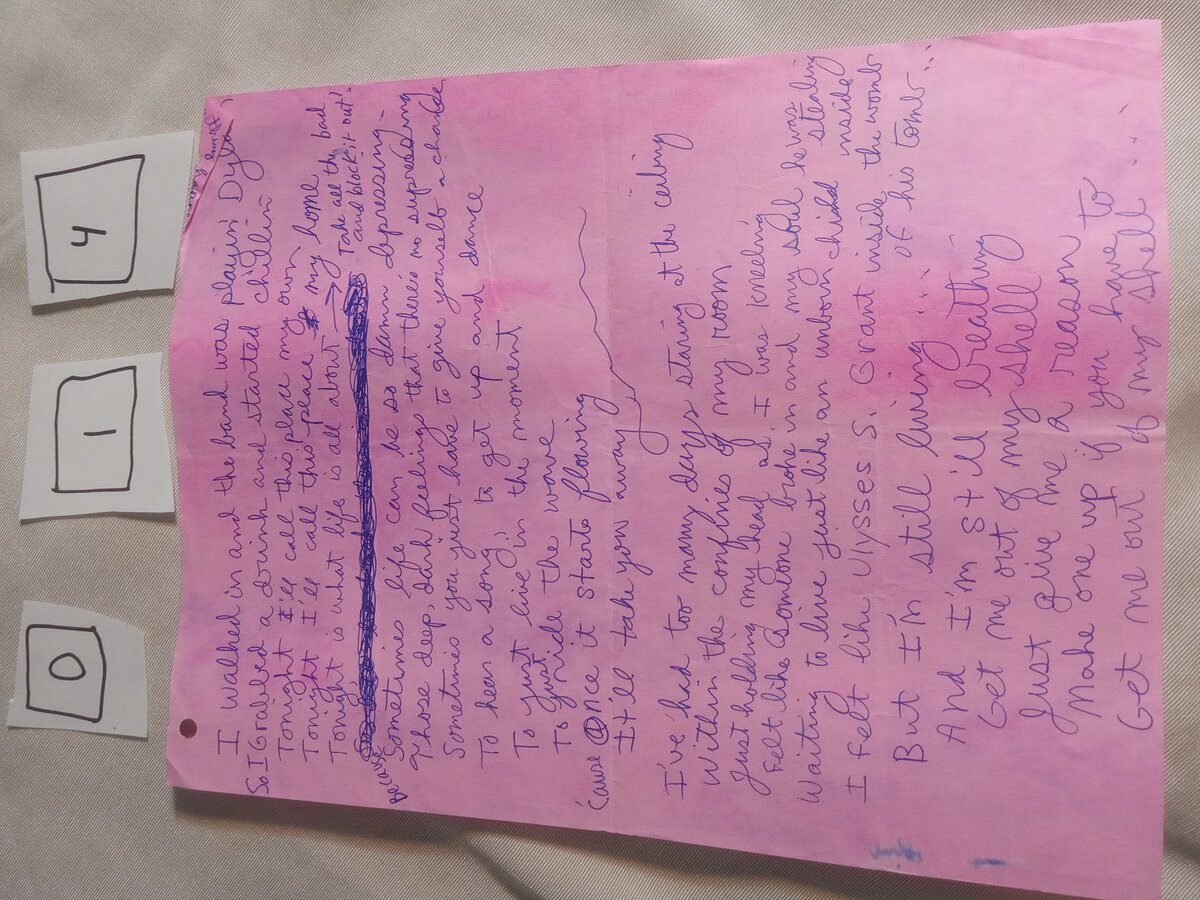 0
1
4
I walked in and the band was playin' Dylan
So I Grabbed a drink and started chillin'
Tonight I'll call this place my own
Tonight I'll call this peace my home
Tonight is what life is all about → Take all the bad
and block it out
Because
Sometimes life can be so damn depressing
Those deep, dark feelings that there's no supressing
Sometimes you just have to give yourself a chance
To hear a song, to get up and dance
To just live in the moment
To just ride the wave
'Cause @nce it starts flowing
It'll take you away
I've had too many days staring at the ceiling
Within the confines of my room
Just holding my head as I was kneeling
Felt like someone broke in and my soul he was stealing
Waiting to live just like an unborn child inside the womb
I felt like Ulysses S. Grant inside of his tomb...
But I'm still living...
And I'm still breathing
Get me out of my shell
Just give me a reason
Make one up if you have to
Get me out of my shell...